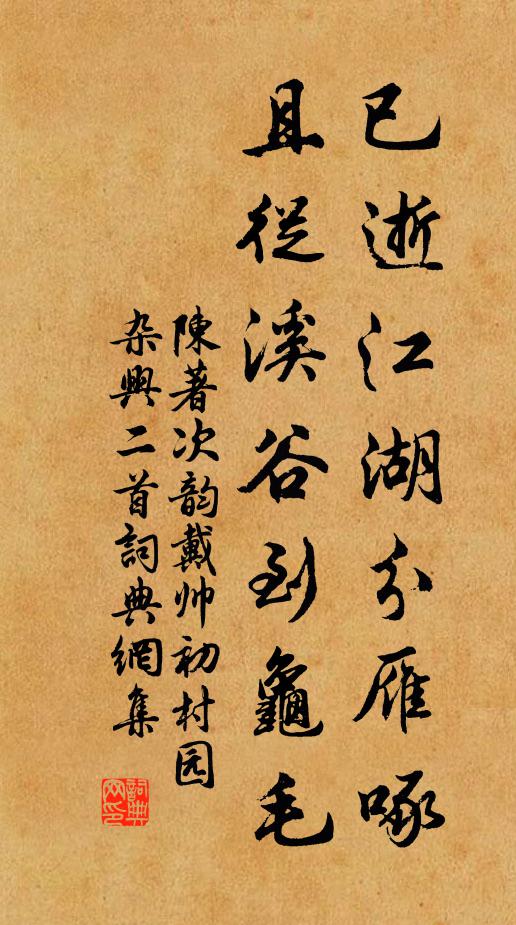 已逝江湖分雁啄
且從溪谷到龜毛
陳著次韵戴帅初村园
杂興二首詞典網集
詞典網印